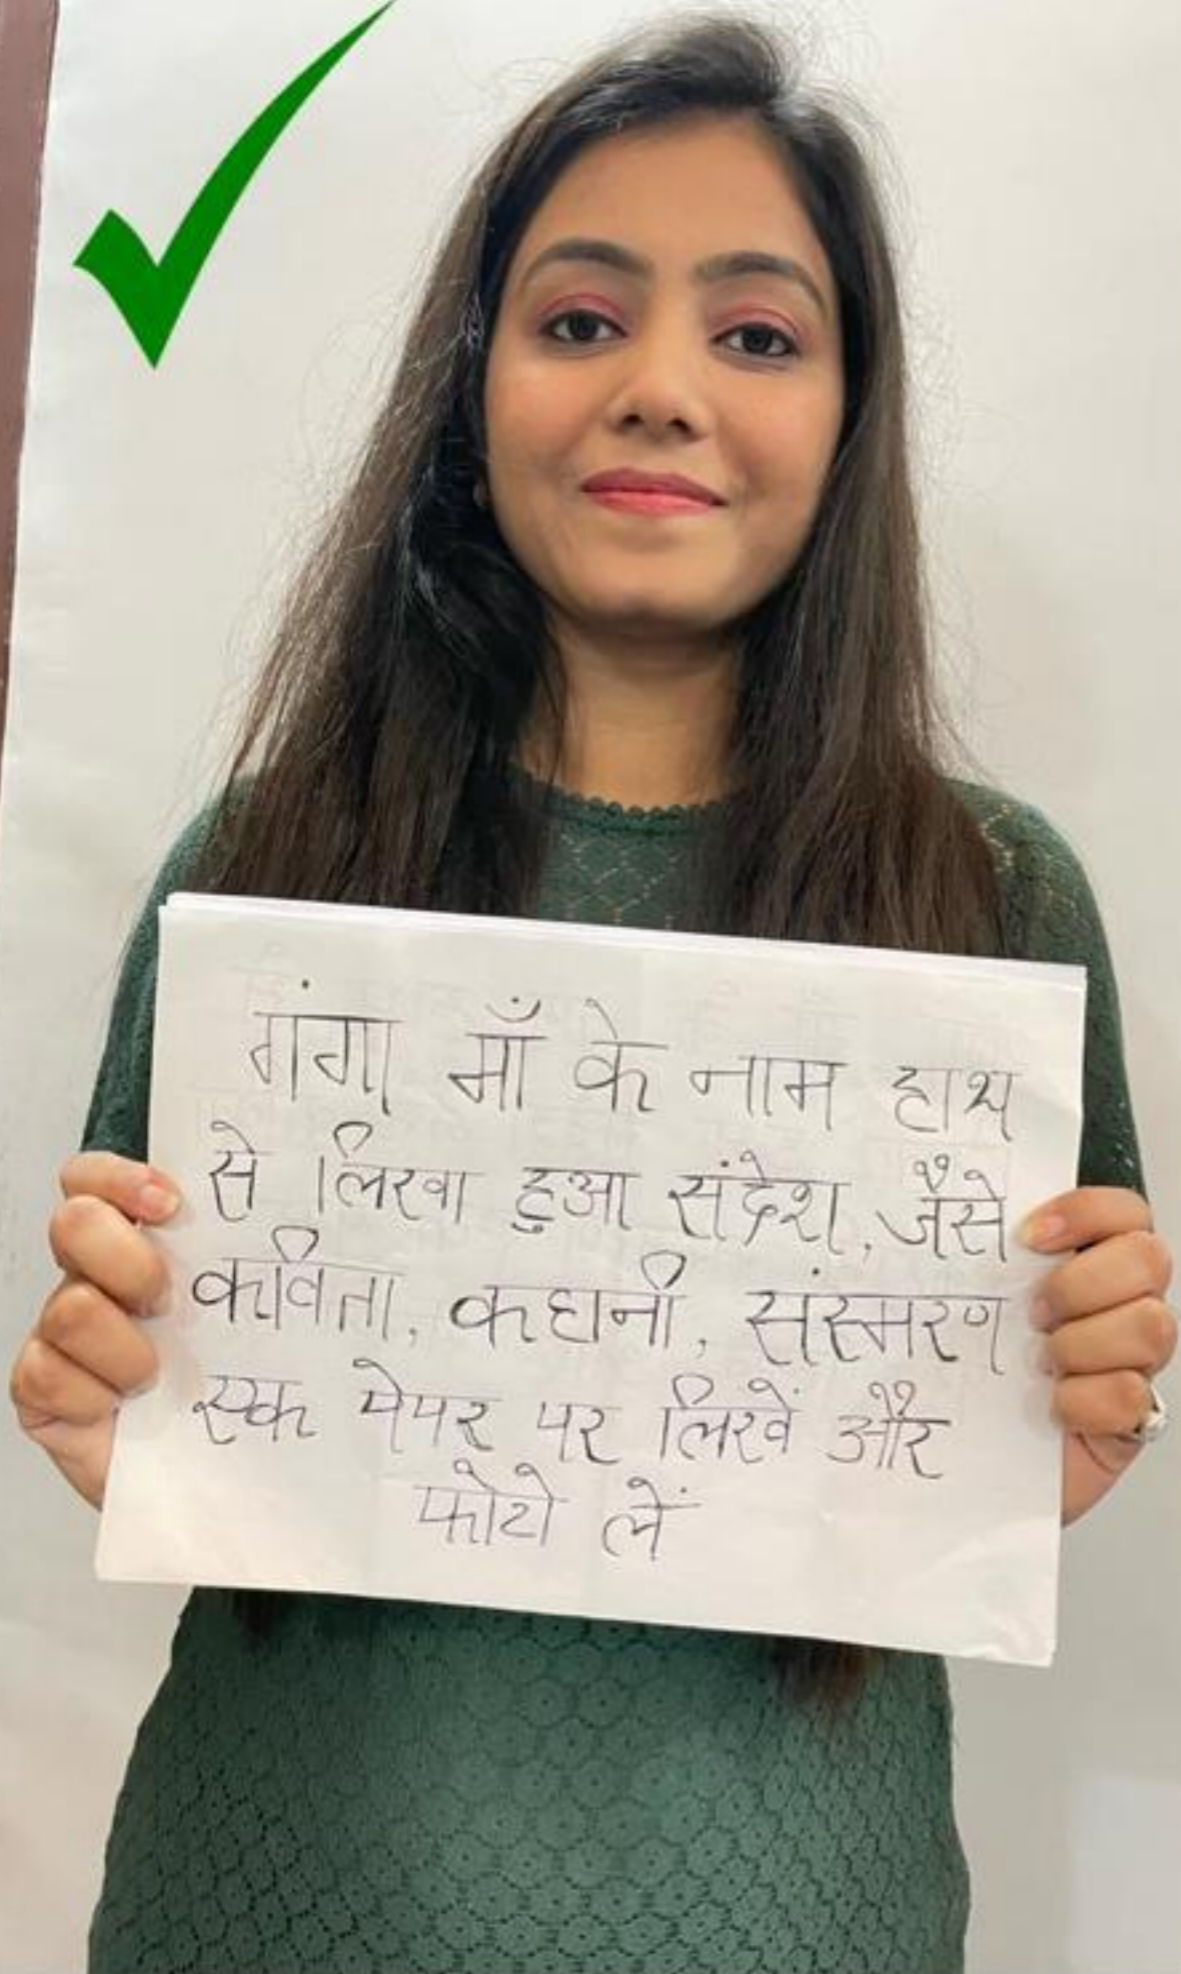 गंगा माँ के नाम हाथ
से लिखा हुआ संदेश, जैसे
कविता, कहानी, संस्मरण
एक पेपर पर लिखें और
फोटो लें